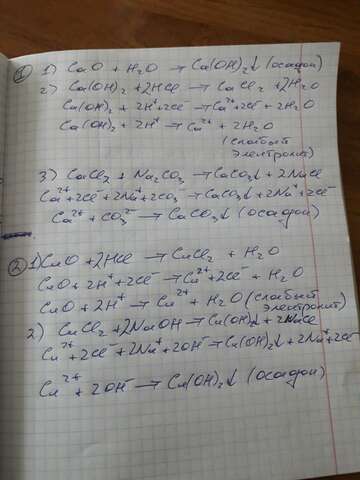 ① 1) CaO + H₂O → Ca(OH)₂↓ (осадок)
2) Ca(OH)₂ + 2HCl → CaCl₂ + 2H₂O
Ca(OH)₂ + 2H⁺ + 2Cl⁻ → Ca²⁺ + 2Cl⁻ + 2H₂O
Ca(OH)₂ + 2H⁺ → Ca²⁺ + 2H₂O
(слабый
электролит)
3) CaCl₂ + Na₂CO₃ → CaCO₃↓ + 2NaCl
Ca²⁺ + 2Cl⁻ + 2Na⁺ + CO₃²⁻ → CaCO₃↓ + 2Na⁺ + 2Cl⁻
Ca²⁺ + CO₃²⁻ → CaCO₃↓ (осадок)
② 1) CuO + 2HCl → CuCl₂ + H₂O
CuO + 2H⁺ + 2Cl⁻ → Cu²⁺ + 2Cl⁻ + H₂O
CuO + 2H⁺ → Cu²⁺ + H₂O (слабый
электролит)
2) CuCl₂ + 2NaOH → Cu(OH)₂↓ + 2NaCl
Cu²⁺ + 2Cl⁻ + 2Na⁺ + 2OH⁻ → Cu(OH)₂↓ + 2Na⁺ + 2Cl⁻
Cu²⁺ + 2OH⁻ → Cu(OH)₂↓ (осадок)